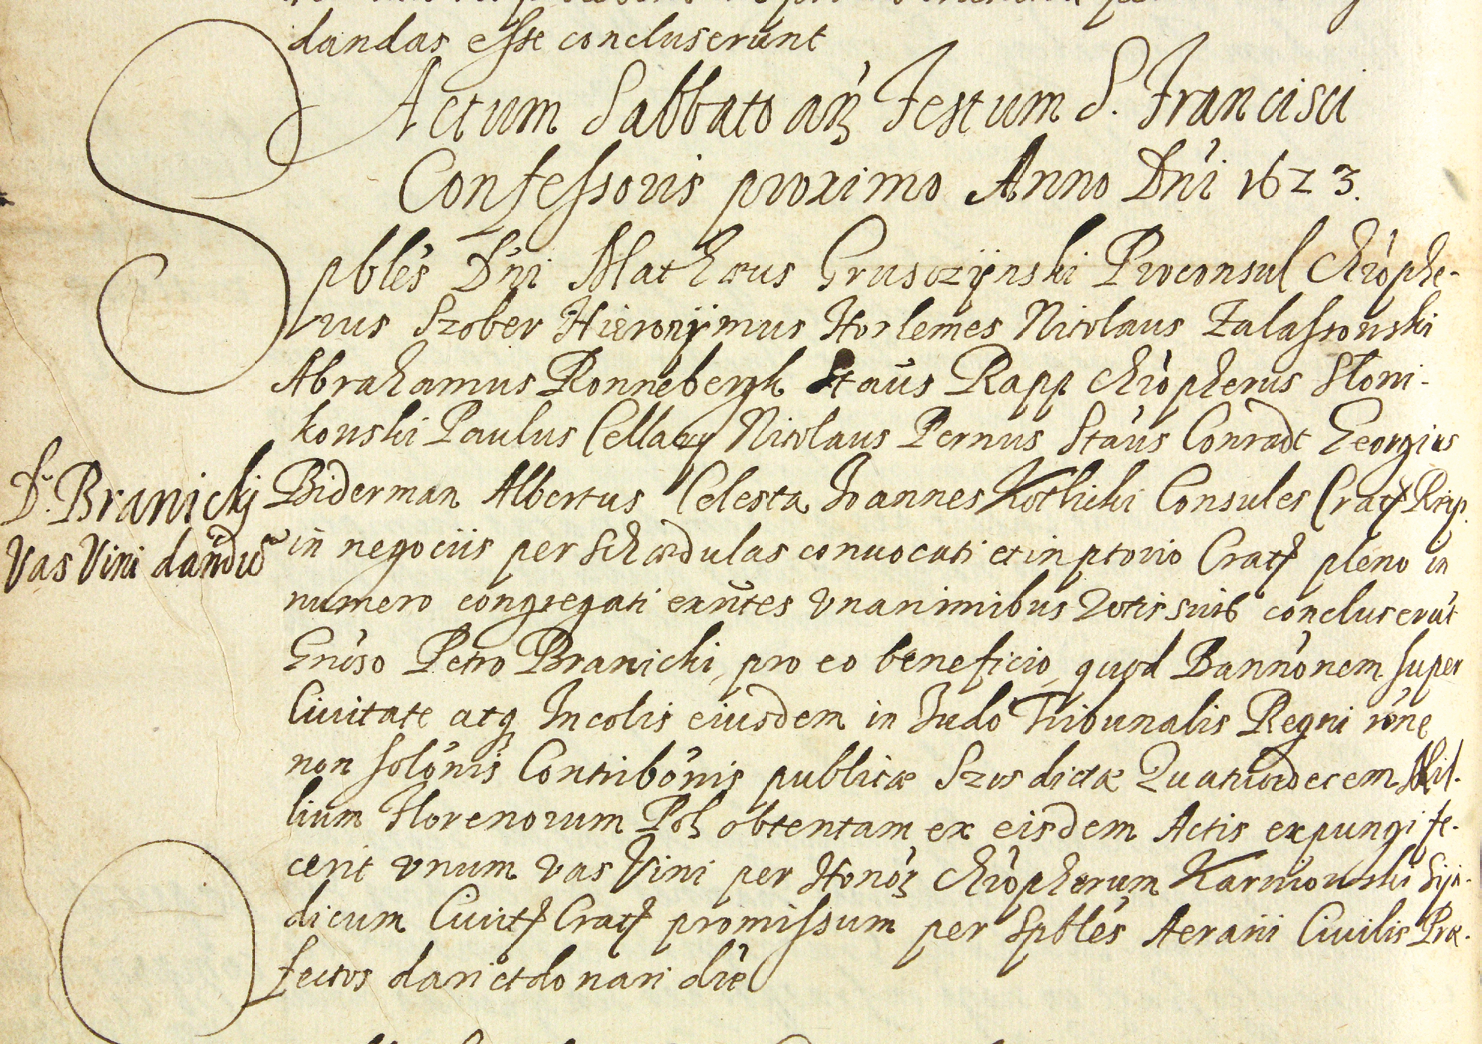 dandas esse concluserunt
Actum Sabbato añ Festum S. Francisci
Confessoris proximo Anno Dñi 1623.
Spbles Dñi Mathæus Grusczÿnski Proconsul Chrophe-
rus Szober Hieronÿmus Horlemes Nicolaus Zalassowski
Abrahamus Ronnebergk Staūs Rapp Chropherus Sloni-
kowski Paulus Cellary Nicolaus Pernus Staūs Conradt Georgius
D. Branickj
Vas Vini dandū
Biderman Albertus Celesta Joannes Kotlicki Consules Crac
in negociis per Schædulas conuocati et in ptorio Crac pleno in
numero congregati exñtes vnanimibus Votis suis concluserūt
Gnōso Petro Branicki, pro eo beneficio, quod Bannōnem super
Ciuitate atq Incolis eiusdem in Judō Tribunalis Regni rōne
non solōnis Contribōnis publicæ Szos dictæ Quatuordecem Mil-
lium Florenorum Pol obtentam ex eisdem Actis expungi fe-
cerit vnum vas Vini per Honor Chropherum Karniowski Sÿn-
dicum Ciuit Crac promissum per Spbles Aerarii Ciuilis Præ-
fectos dari et donari